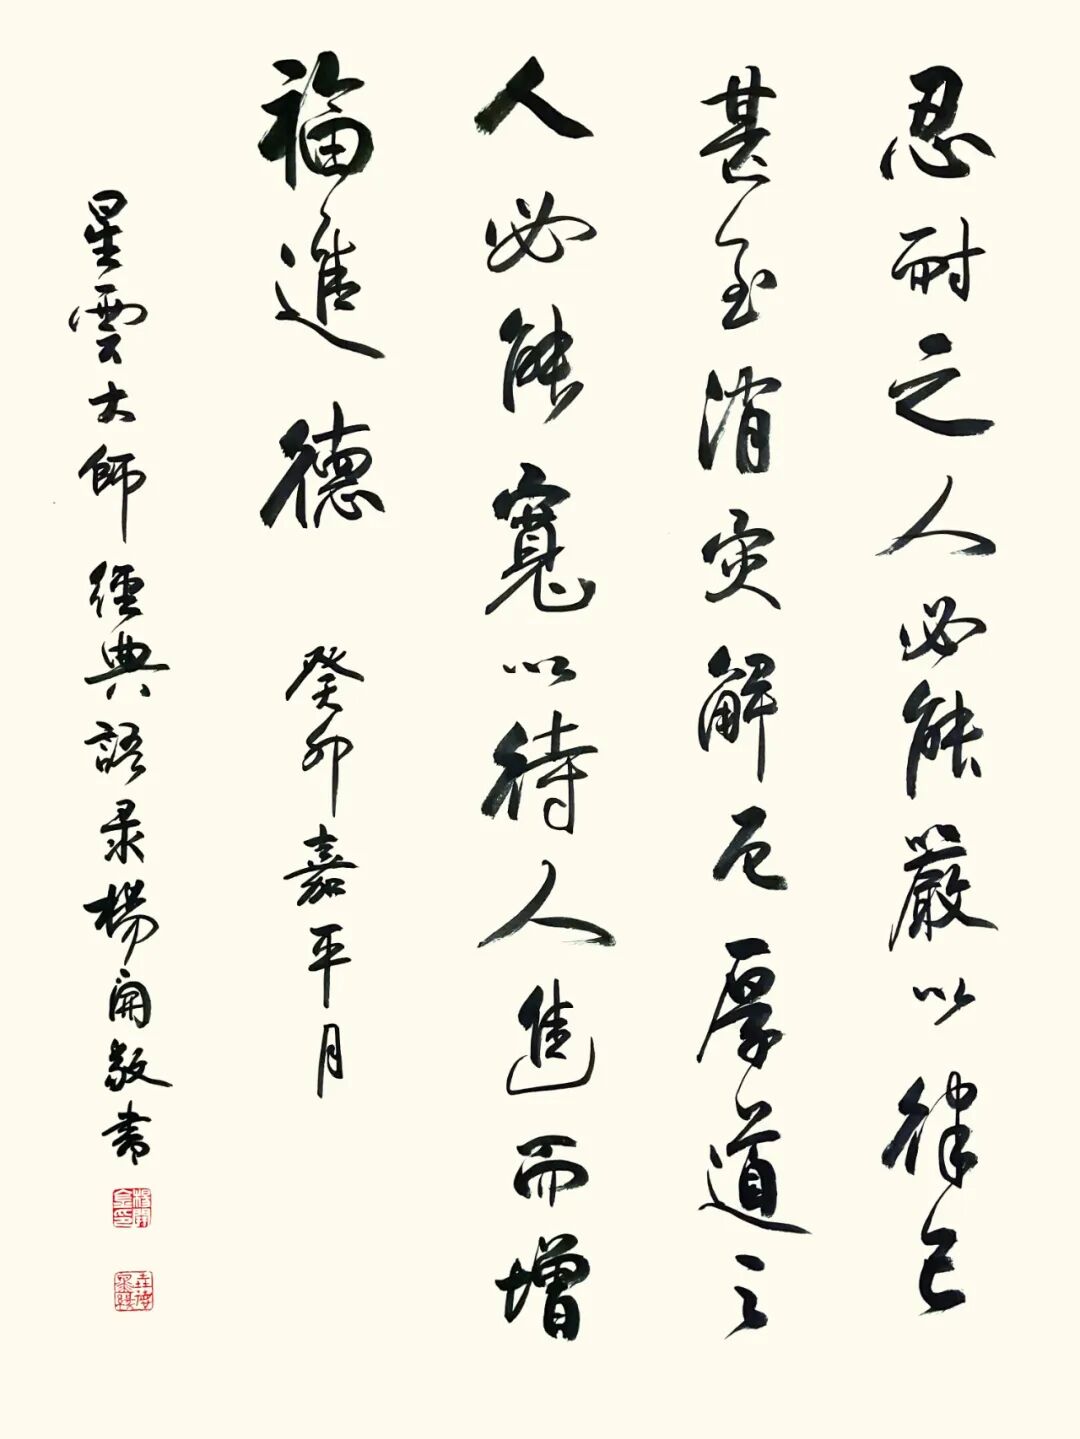 忍耐之人必能嚴以律己
甚至消灾解厄厚道之
人必能寬以待人進而增
福進德
癸卯嘉平月
星雲大師經典語录楊開敬書